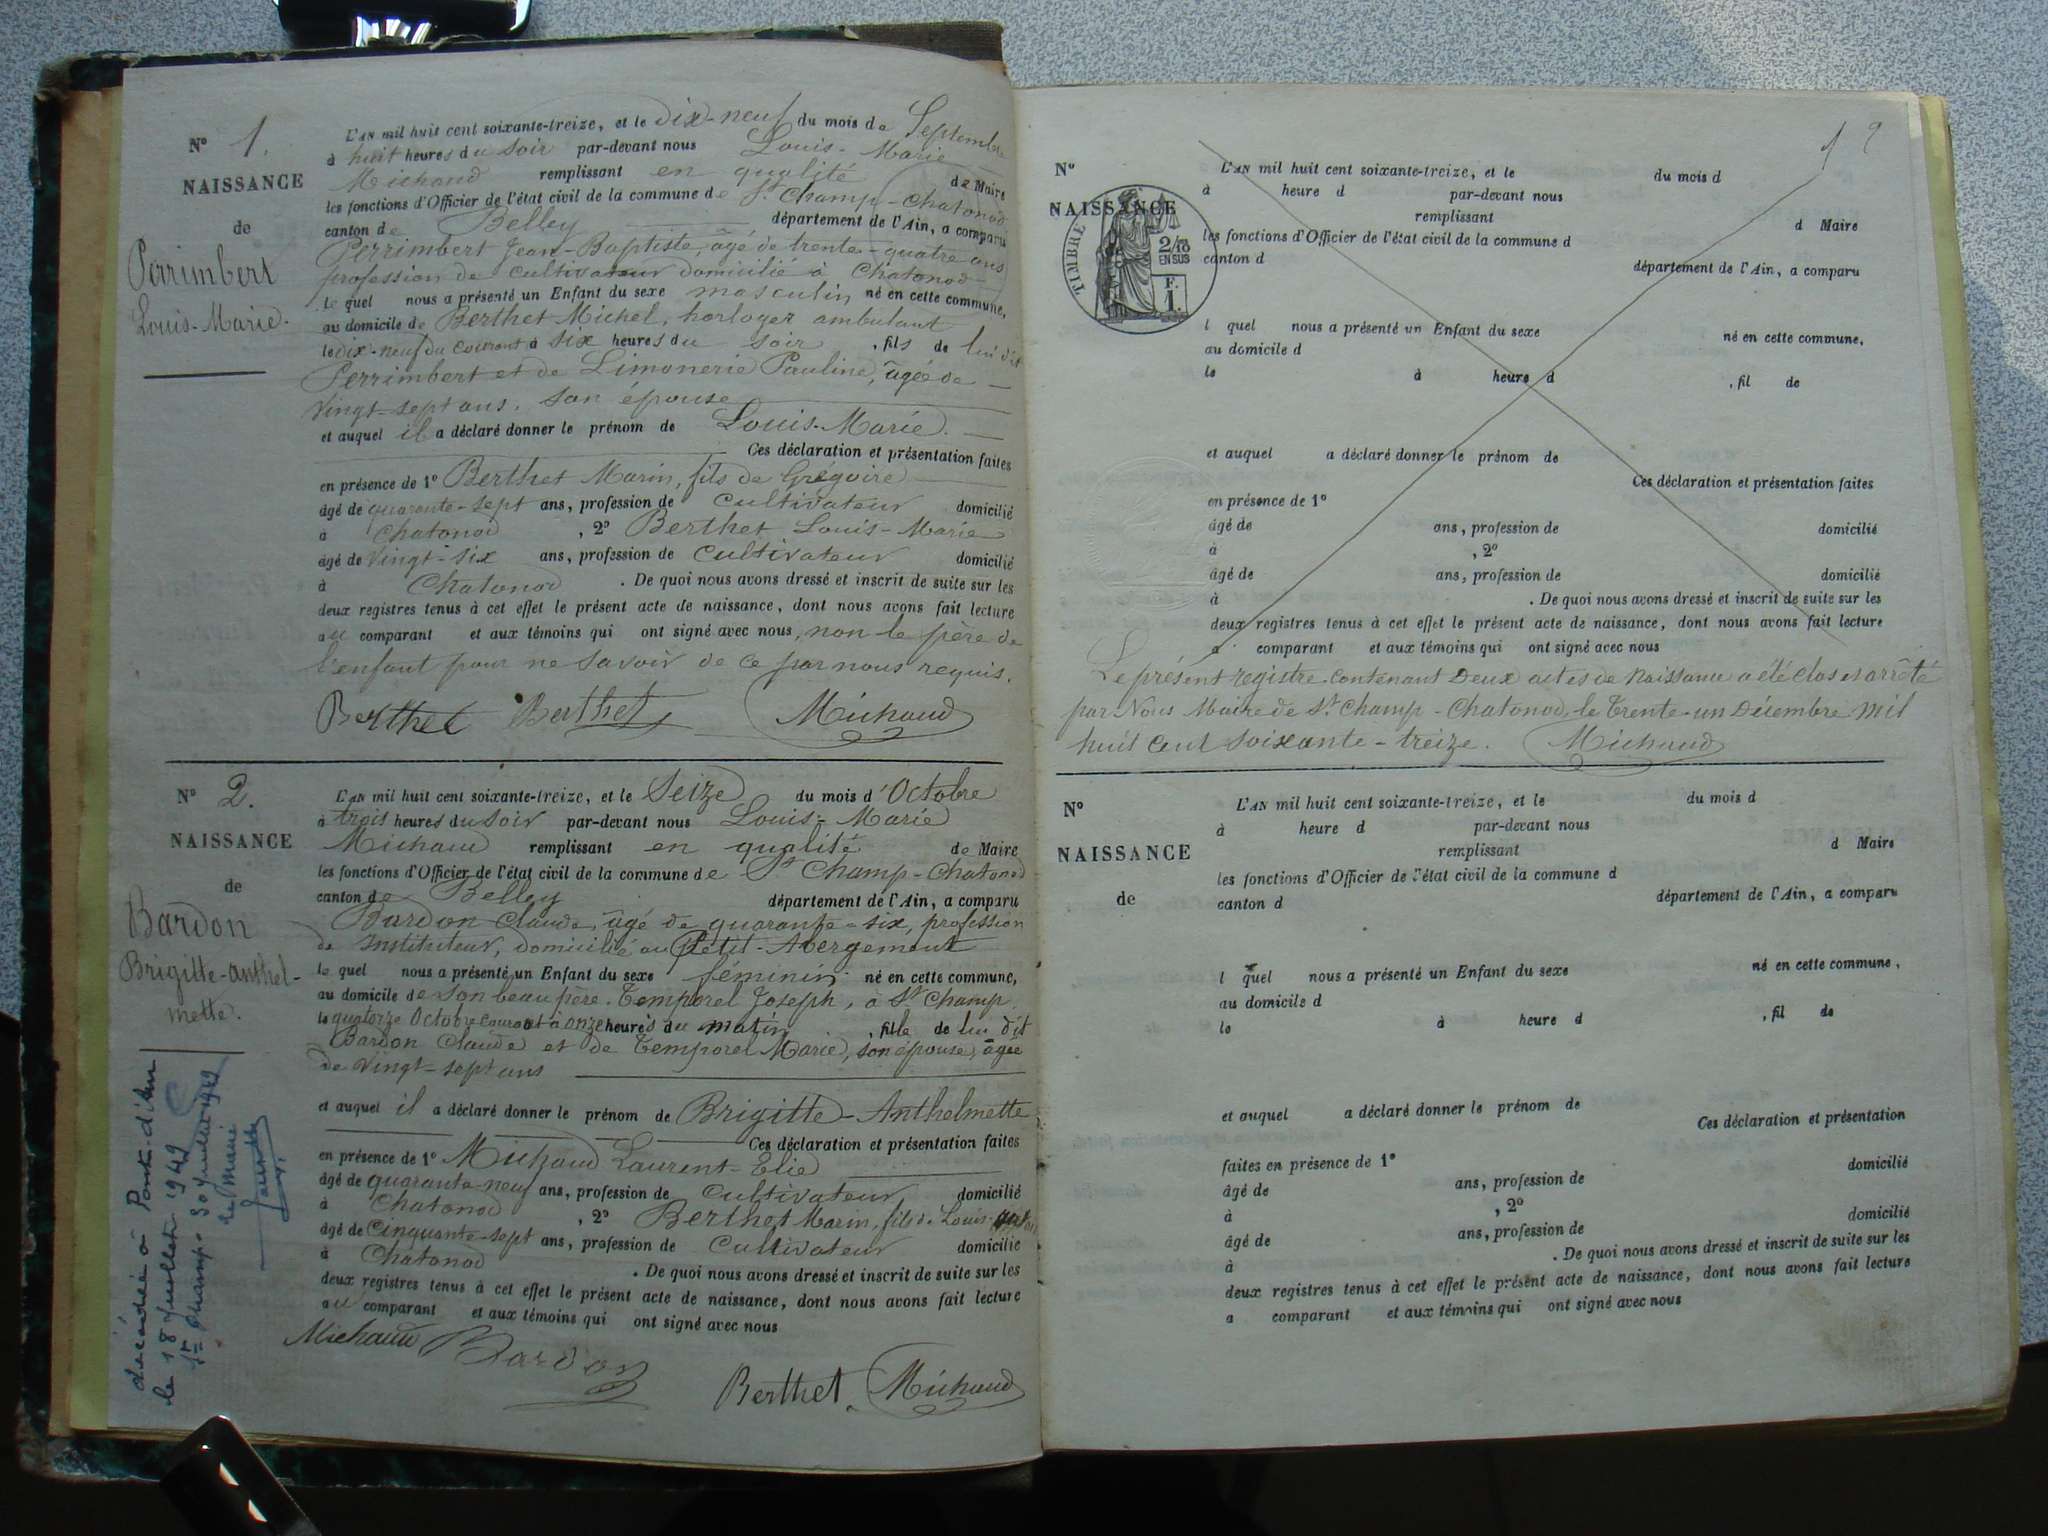 N° 1.
NAISSANCE
de
Perrimbert
Louis-Marie.
L'AN mil huit cent soixante-treize, et le dix-neuf du mois de Septembre
à huit heures du soir par-devant nous Louis-Marie
Michaud remplissant en qualité de Maire
les fonctions d'Officier de l'état civil de la commune de St Champ-Chatonod
canton de Belley département de l'Ain, a comparu
Perrimbert Jean-Baptiste, âgé de trente-quatre ans
profession de cultivateur domicilié à Chatonod
lequel nous a présenté un Enfant du sexe masculin né en cette commune,
au domicile de Berthet Michel, horloger ambulant
le dix-neuf du courant à six heures du soir, fils de lui dit
Perrimbert et de Limonerie Pauline, âgée de
vingt-sept ans, son épouse
et auquel il a déclaré donner le prénom de Louis-Marie.
Ces déclaration et présentation faites
en présence de 1° Berthet Marin, fils de Grégoire
âgé de quarante-sept ans, profession de cultivateur domicilié
à Chatonod, 2° Berthet Louis-Marie
âgé de vingt-six ans, profession de cultivateur domicilié
à Chatonod. De quoi nous avons dressé et inscrit de suite sur les
deux registres tenus à cet effet le présent acte de naissance, dont nous avons fait lecture
au comparant et aux témoins qui ont signé avec nous, non le père de
l'enfant pour ne savoir de ce par nous requis.
Berthet Berthet Michaud
N° 2.
NAISSANCE
de
Bardon
Brigitte-anthel-
mette.
L'AN mil huit cent soixante-treize, et le Seize du mois d'Octobre
à trois heures du soir par-devant nous Louis-Marie
Michaud remplissant en qualité de Maire
les fonctions d'Officier de l'état civil de la commune de St Champ-Chatonod
canton de Belley département de l'Ain, a comparu
Bardon Claude, âgé de quarante-six, profession
de Instituteur, domicilié au Petit-Abergement
lequel nous a présenté un Enfant du sexe féminin né en cette commune,
au domicile de son beau père Temporel Joseph, à St Champ
le quatorze Octobre courant à onze heures du matin, fille de lui dit
Bardon Claude et de Temporel Marie, son épouse, âgée
de vingt-sept ans
et auquel il a déclaré donner le prénom de Brigitte-Anthelmette
Ces déclaration et présentation faites
en présence de 1° Michaud Laurent-Elie
âgé de quarante-neuf ans, profession de cultivateur domicilié
à Chatonod, 2° Berthet Marin, fils de Louis
âgé de cinquante-sept ans, profession de cultivateur domicilié
à Chatonod. De quoi nous avons dressé et inscrit de suite sur les
deux registres tenus à cet effet le présent acte de naissance, dont nous avons fait lecture
au comparant et aux témoins qui ont signé avec nous
Michaud Bardon
Berthet Michaud
décédée à Pont-d'Ain
le 18 Juillet 1942
St Champ 30 Juillet 1942
le Maire
N°
NAISSANCE
TIMBRE
2/10
EN SUS
F.
1.
L'AN mil huit cent soixante-treize, et le du mois d
à heure d par-devant nous
remplissant d Maire
les fonctions d'Officier de l'état civil de la commune d
canton d département de l'Ain, a comparu
l quel nous a présenté un Enfant du sexe né en cette commune,
au domicile d
le à heure d, fil de
et auquel a déclaré donner le prénom de
Ces déclaration et présentation faites
en présence de 1°
âgé de ans, profession de domicilié
à, 2°
âgé de ans, profession de domicilié
à. De quoi nous avons dressé et inscrit de suite sur les
deux registres tenus à cet effet le présent acte de naissance, dont nous avons fait lecture
a comparant et aux témoins qui ont signé avec nous
Le présent registre contenant Deux actes de Naissance a été clos et arrêté
par Nous Maire de St Champ-Chatonod, le trente-un Décembre mil
huit cent soixante-treize. Michaud
N°
NAISSANCE
de
L'AN mil huit cent soixante-treize, et le du mois d
à heure d par-devant nous
remplissant d Maire
les fonctions d'Officier de l'état civil de la commune d
canton d département de l'Ain, a comparu
l quel nous a présenté un Enfant du sexe né en cette commune,
au domicile d
le à heure d, fil de
et auquel a déclaré donner le prénom de
Ces déclaration et présentation
faites en présence de 1° domicilié
âgé de ans, profession de
à, 2° domicilié
âgé de ans, profession de
à. De quoi nous avons dressé et inscrit de suite sur les
deux registres tenus à cet effet le présent acte de naissance, dont nous avons fait lecture
a comparant et aux témoins qui ont signé avec nous